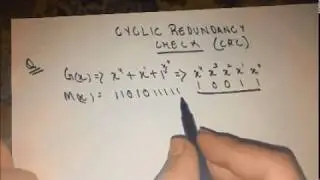 CYCLIC REDUNDANCY
CHECK (CRC)
Q
G(x) => x⁴ + x¹ + 1 x⁰ => x⁴ x³ x² x¹ x⁰
1 0 0 1 1
M(x) = 1101011111